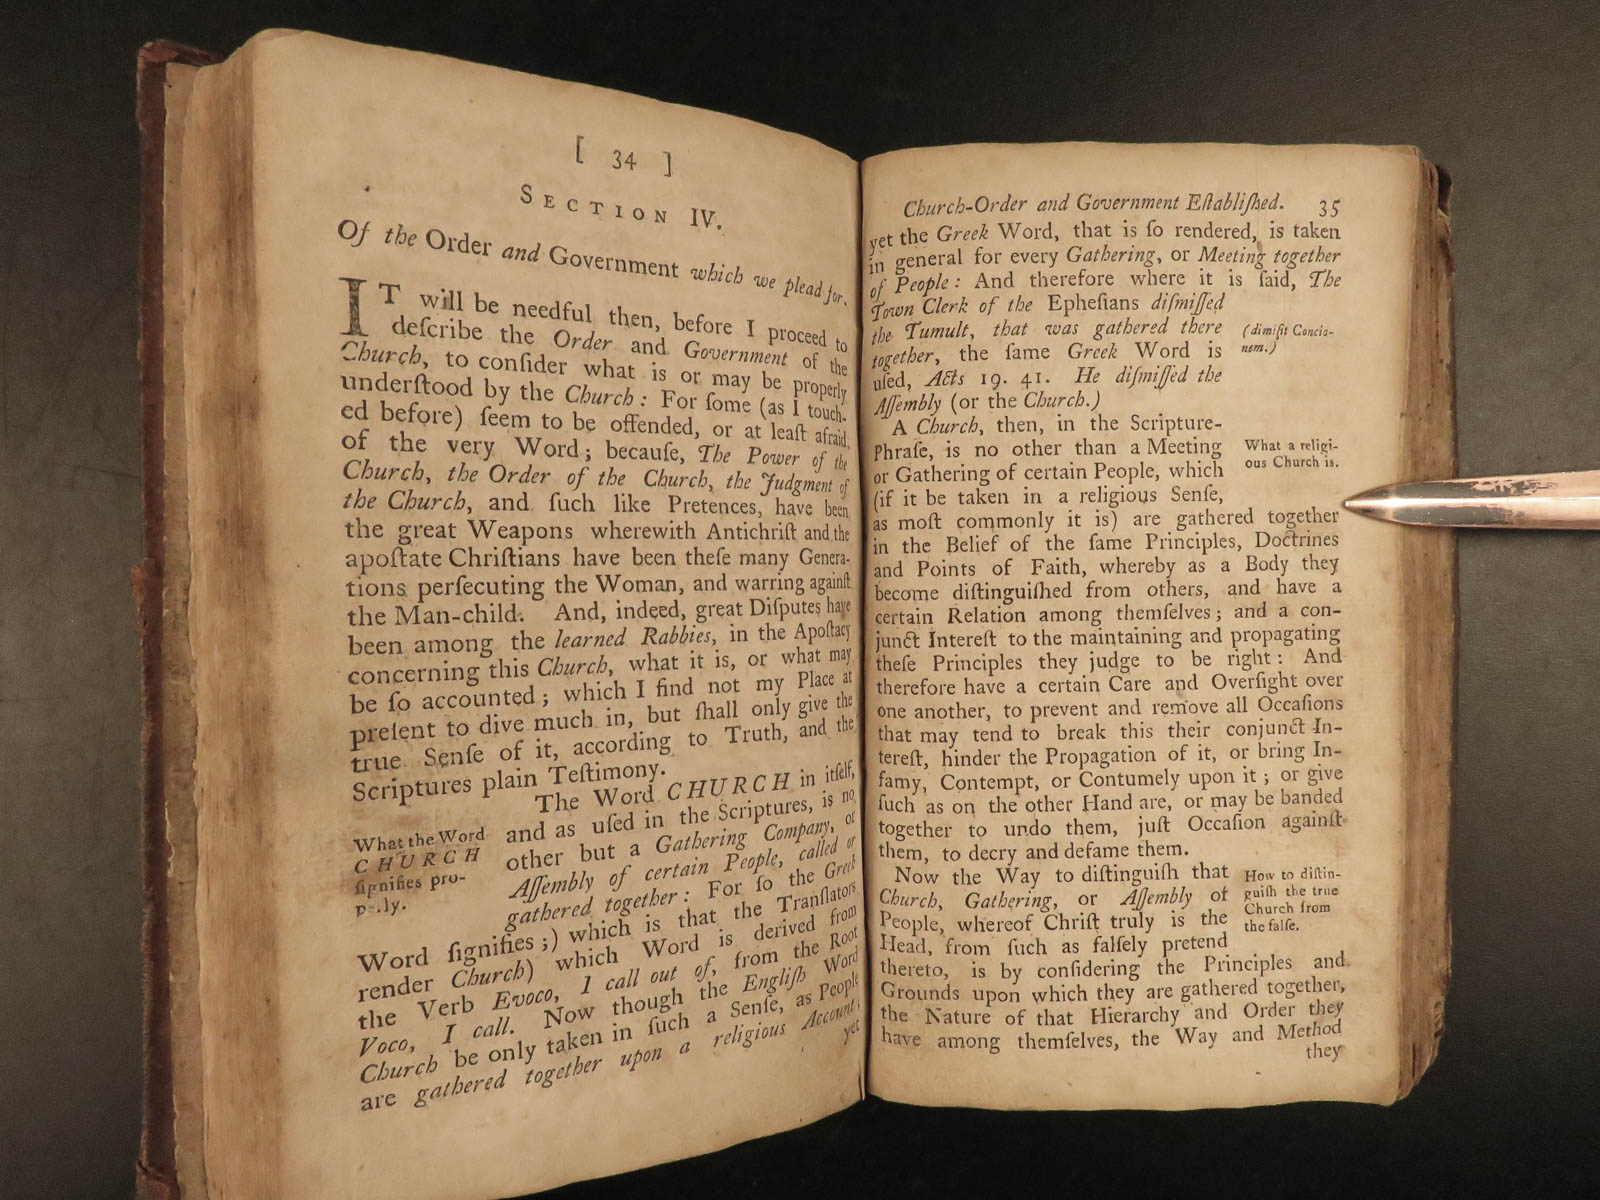 [ 34 ]
SECTION IV.
Of the Order and Government which we plead for.
IT will be needful then, before I proceed to
deſcribe the Order and Government of the
Church, to conſider what is or may be properly
underſtood by the Church: For ſome (as I touch-
ed before) ſeem to be offended, or at leaſt afraid,
of the very Word; becauſe, The Power of the
Church, the Order of the Church, the Judgment of
the Church, and ſuch like Pretences, have been
the great Weapons wherewith Antichriſt and the
apoſtate Chriſtians have been theſe many Genera-
tions perſecuting the Woman, and warring againſt
the Man-child. And, indeed, great Diſputes have
been among the learned Rabbies, in the Apoſtacy
concerning this Church, what it is, or what may
be ſo accounted; which I find not my Place at
preſent to dive much in, but ſhall only give the
true Senſe of it, according to Truth, and the
Scriptures plain Teſtimony.
The Word CHURCH in itſelf,
and as uſed in the Scriptures, is no
other but a Gathering Company, or
Aſſembly of certain People, called or
gathered together: For ſo the Greek
What the Word
CHURCH
ſignifies pro-
Word ſignifies;) which is that the Tranſlators
render Church) which Word is derived from
the Verb Evoco, I call out of, from the Root
Voco, I call. Now though the Engliſh Word
Church be only taken in ſuch a Senſe, as People
are gathered together upon a religious Account;
yet
Church-Order and Government Eſtabliſhed. 35
yet the Greek Word, that is ſo rendered, is taken
in general for every Gathering, or Meeting together
of People: And therefore where it is ſaid, The
Town Clerk of the Epheſians diſmiſſed
the Tumult, that was gathered there
together, the ſame Greek Word is
uſed, Acts 19. 41. He diſmiſſed the
Aſſembly (or the Church.)
(dimiſit Concio-
nem.)
A Church, then, in the Scripture-
Phraſe, is no other than a Meeting
or Gathering of certain People, which
(if it be taken in a religious Senſe,
as moſt commonly it is) are gathered together
in the Belief of the ſame Principles, Doctrines
and Points of Faith, whereby as a Body they
become diſtinguiſhed from others, and have a
certain Relation among themſelves; and a con-
junct Intereſt to the maintaining and propagating
theſe Principles they judge to be right: And
therefore have a certain Care and Overſight over
one another, to prevent and remove all Occaſions
that may tend to break this their conjunct In-
tereſt, hinder the Propagation of it, or bring In-
famy, Contempt, or Contumely upon it; or give
ſuch as on the other Hand are, or may be banded
together to undo them, juſt Occaſion againſt
them, to decry and defame them.
What a religi-
ous Church is.
Now the Way to diſtinguiſh that
Church, Gathering, or Aſſembly of
People, whereof Chriſt truly is the
Head, from ſuch as falſely pretend
thereto, is by conſidering the Principles and
Grounds upon which they are gathered together,
the Nature of that Hierarchy and Order they
have among themſelves, the Way and Method
they
How to diſtin-
guiſh the true
Church from
the falſe.